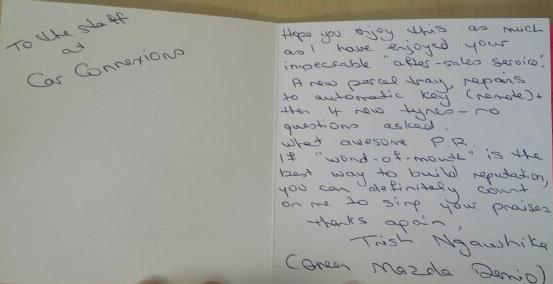 To the staff
at
Car Connexions
Hope you enjoy this as much
as I have enjoyed your
impeccable "after-sales service".
A new parcel tray, repairs
to automatic key (remote) +
then 4 new tyres - no
questions asked.
What awesome P.R.
If "word-of-mouth" is the
best way to build reputation,
you can definitely count
on me to sing your praises
thanks again,
Trish Ngawhika
(Green Mazda Demio)